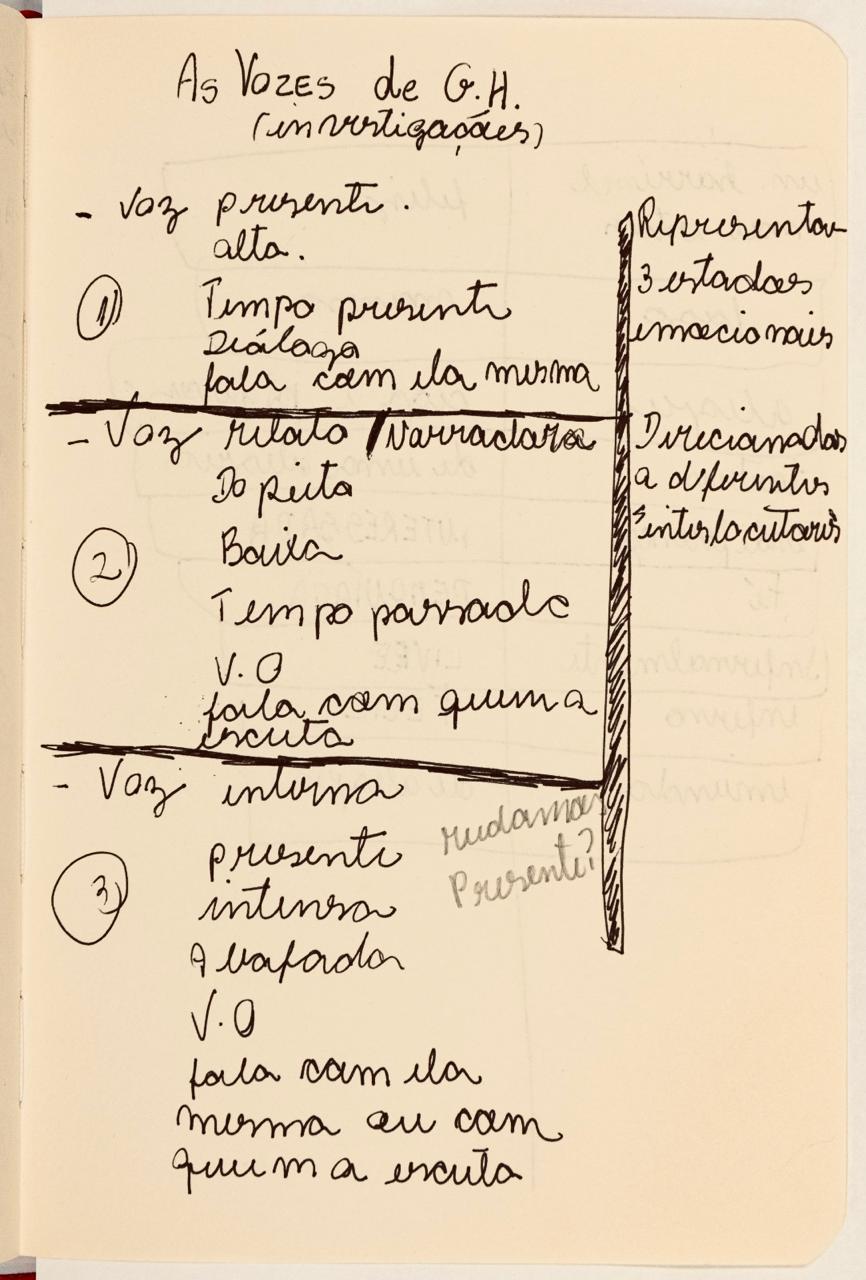 As Vozes de G.H.
(investigações)
- Voz presente.
alta.
1)
Tempo presente
Diálogo
fala com ela mesma
- Voz relato / Narradora
Do peito
2)
Baixa
Tempo passado
V.O
fala com quem a
escuta
- Voz interna
3)
presente
intensa
Abafada
V.O
fala com ela
mesma ou com
quem a escuta
Presente?
Representar
3 estados
emocionais
Direcionadas
a diferentes
"interlocutores"